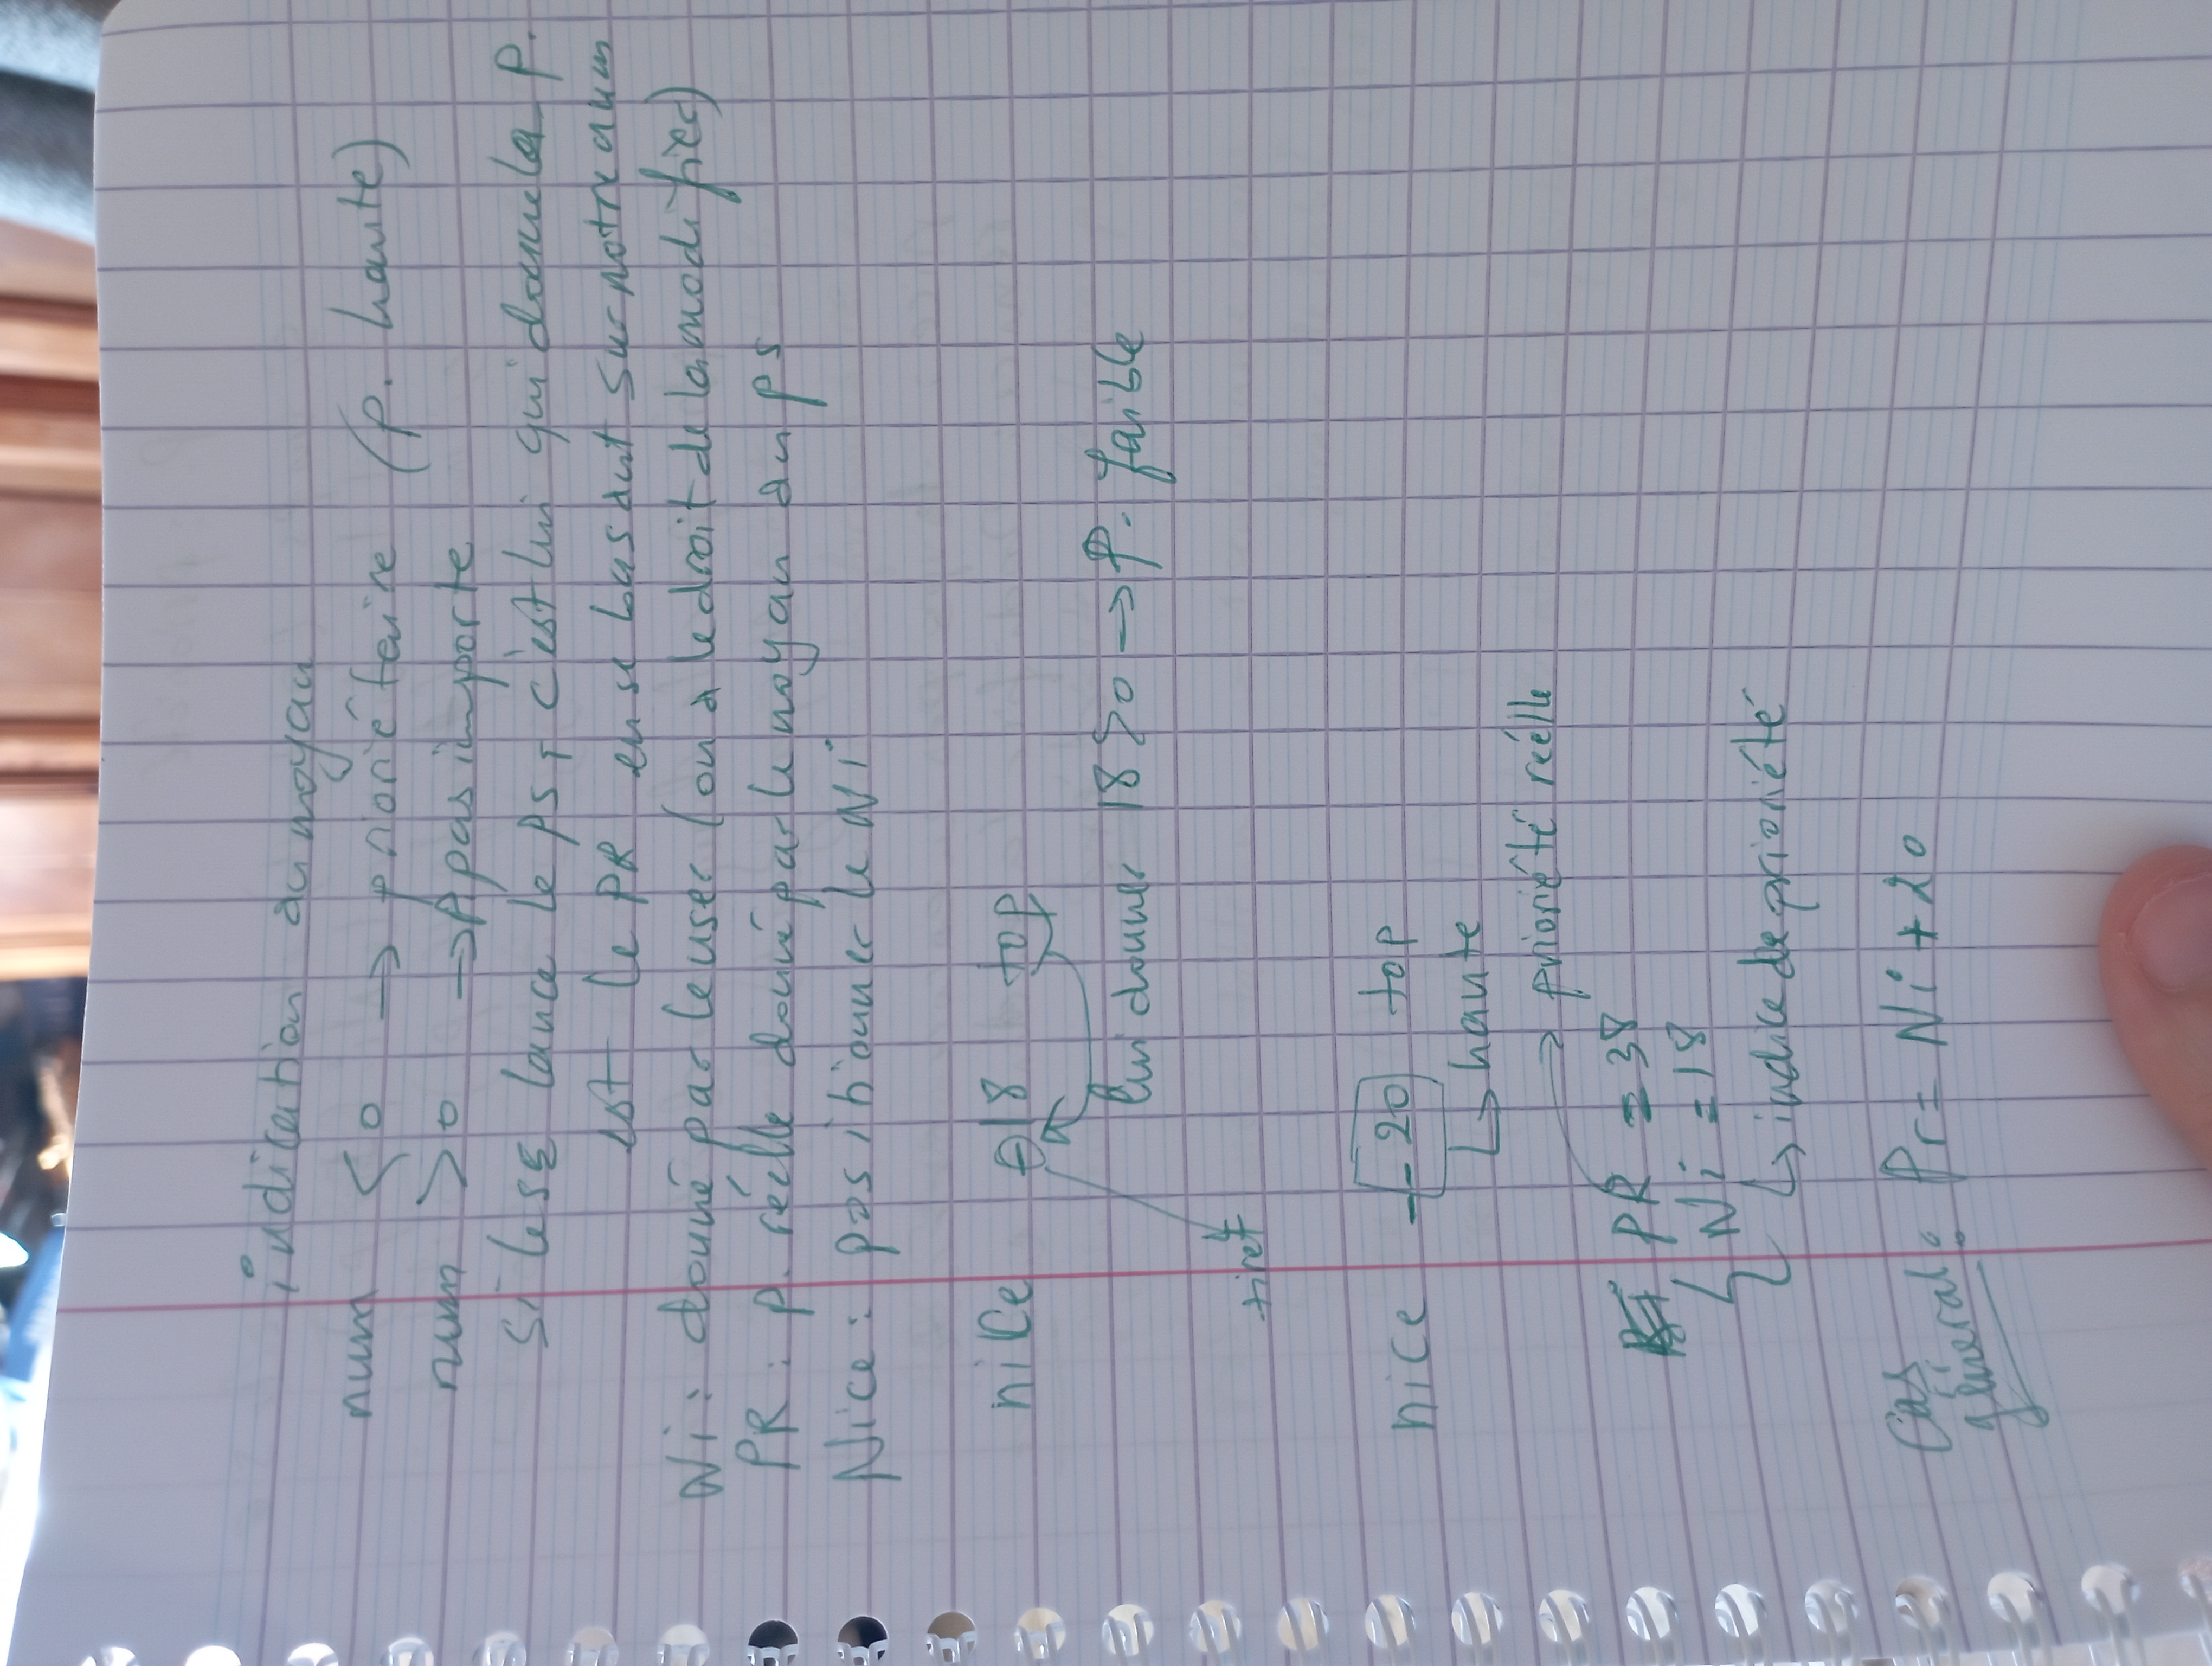 indication du noyau
num < 0 → prioriétaire (p. haute)
num > 0 → pas importe
si le SE lance le ps, c'est lui qui donne la p.
est le PR en se basant sur notre num
Ni : donné par le user (on a le droit de la modifier)
PR : p. réelle donné par le noyau du ps
Nice : positionner le Ni
nice -18 top
lui donner 18 > 0 → p. faible
tiret
nice --20 top
↳ haute
→ prioriété réelle
PR = 38
Ni = 18
↳ indice de prioriété
Cas
général : Pr = Ni + 20